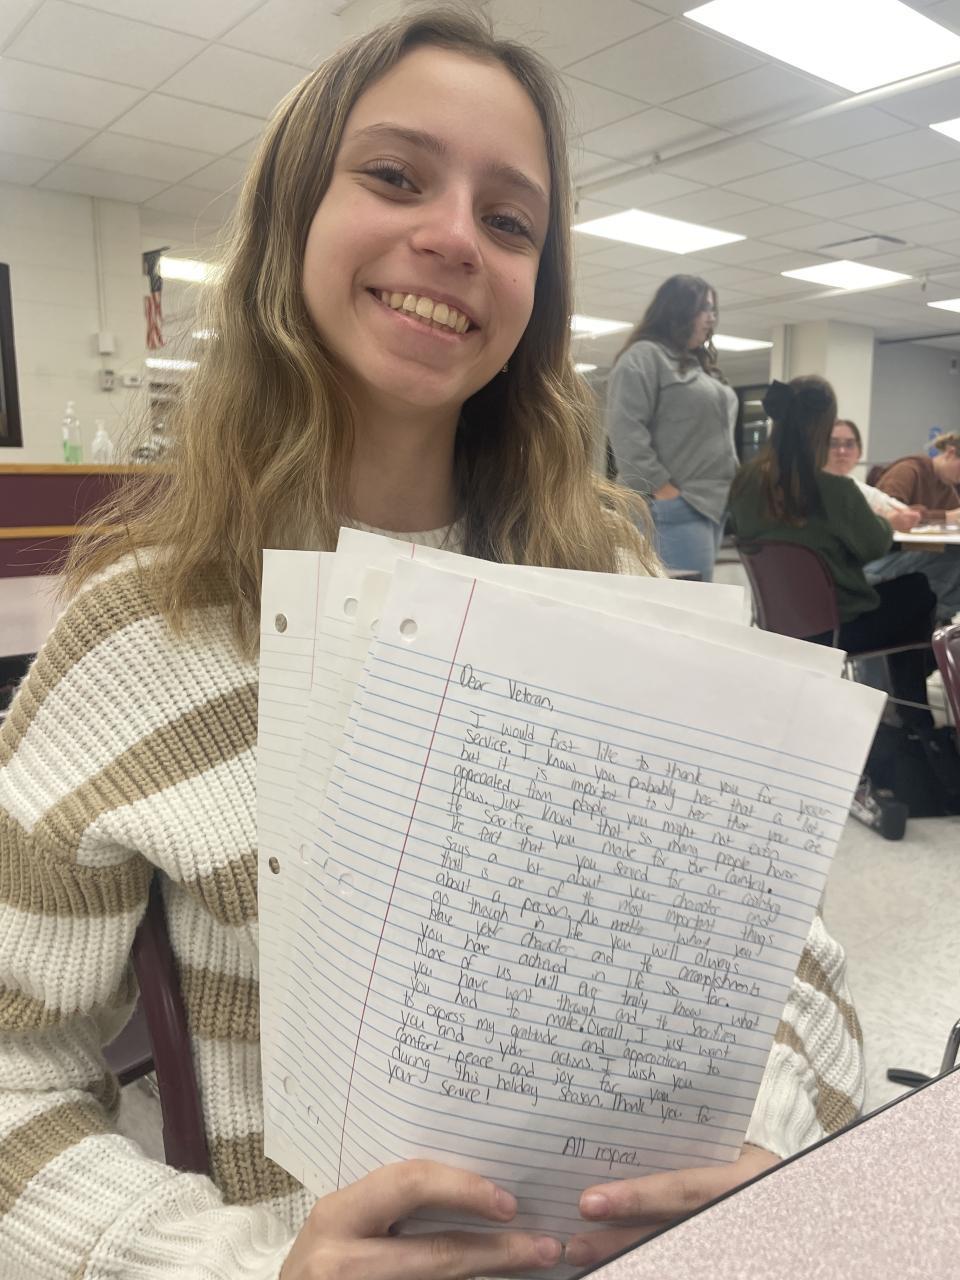 Dear Veteran,
I would first like to thank you for your
service. I know you probably hear that a lot,
but it is important to hear that you are
appreciated from people you might not even
know. Just know that so many people honor
the sacrifice you made for our country.
The fact that you served for our country
says a lot about your character and
that is one of the most important things
about a person. No matter what you
go though in life you will always
have your character and the accomplishments
you have achieved in life so far.
None of us will ever truly know what
you have went though and the sacrifices
you had to make. Overall, I just want
to express my gratitude and appreciation to
you and your actions. I wish you
comfort, peace and joy for you
during this holiday season. Thank you for
your service!
All respect,